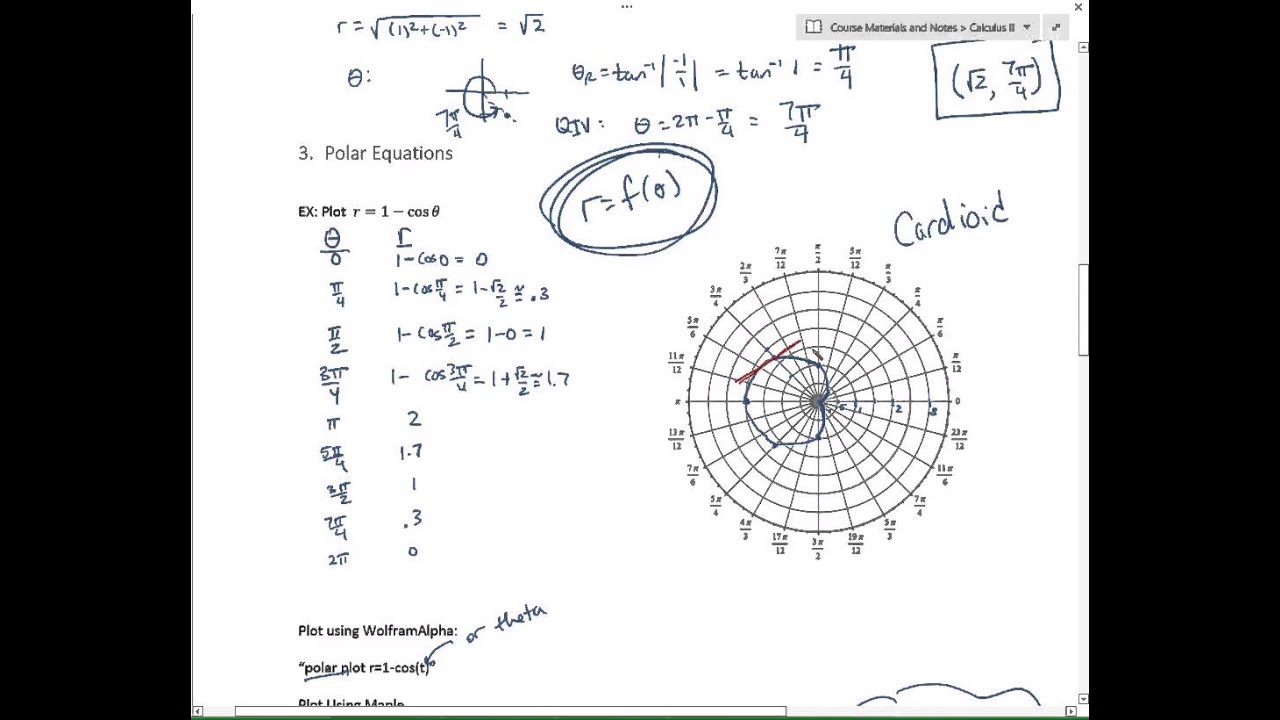 r = √(1)²+(-1)² = √2
Course Materials and Notes > Calculus II
θ:
7π/4
θR = tan⁻¹|-1/1| = tan⁻¹ 1 = π/4
(√2, 7π/4)
QIV: θ = 2π - π/4 = 7π/4
3. Polar Equations
r = f(θ)
EX: Plot r = 1 − cos θ
Cardioid
θ r
0 1-cos0 = 0
π/4 1-cosπ/4 = 1-√2/2 ≈ .3
π/2 1-cosπ/2 = 1-0 = 1
3π/4 1- cos3π/4 = 1+√2/2 ≈ 1.7
π 2
5π/4 1.7
3π/2 1
7π/4 .3
2π 0
π/2
7π/12 5π/12
2π/3 π/3
3π/4 π/4
5π/6 π/6
11π/12 π/12
π .5 1 2 3 0
13π/12 23π/12
7π/6 11π/6
5π/4 7π/4
4π/3 5π/3
17π/12 19π/12
3π/2
Plot using WolframAlpha:
or theta
"polar plot r=1-cos(t)"
Plot Using Maple